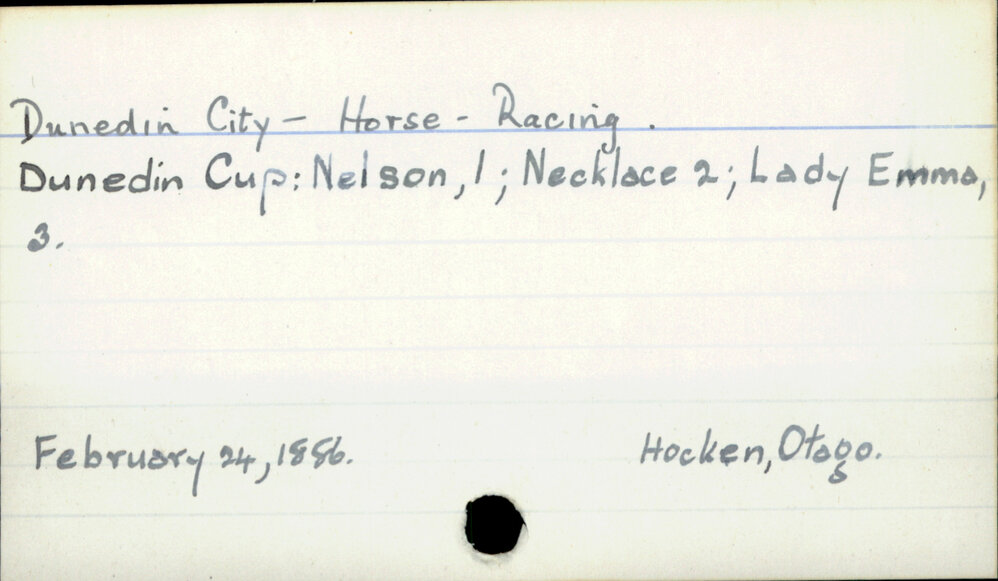 Dunedin City - Horse - Racing.
Dunedin Cup: Nelson, 1; Necklace 2; Lady Emma,
3.
February 24, 1886. Hocken, Otago.